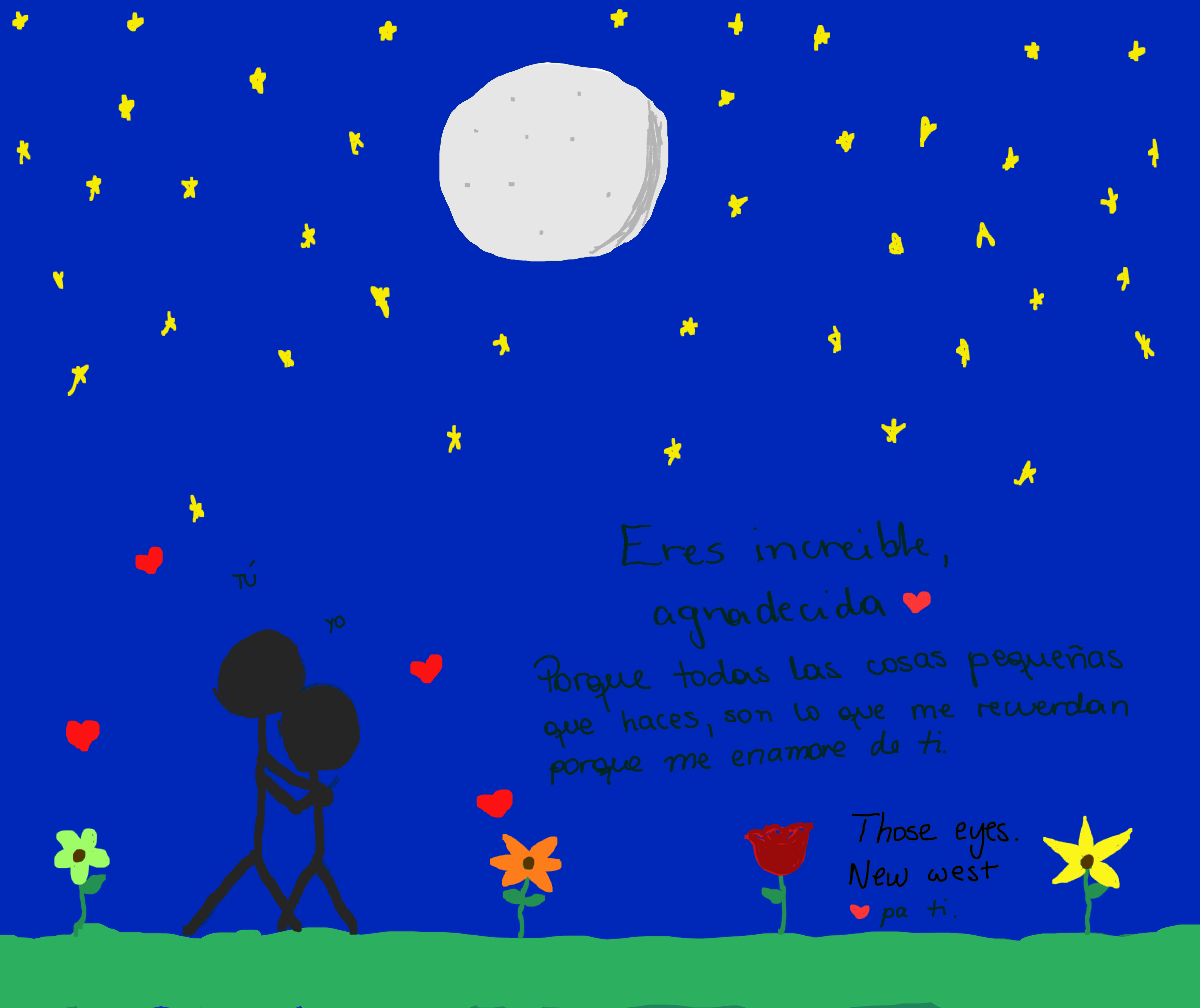 Tú
yo
Eres increible,
agradecida
Porque todas las cosas pequeñas
que haces, son lo que me recuerdan
porque me enamore de ti.
Those eyes.
New west
pa ti.